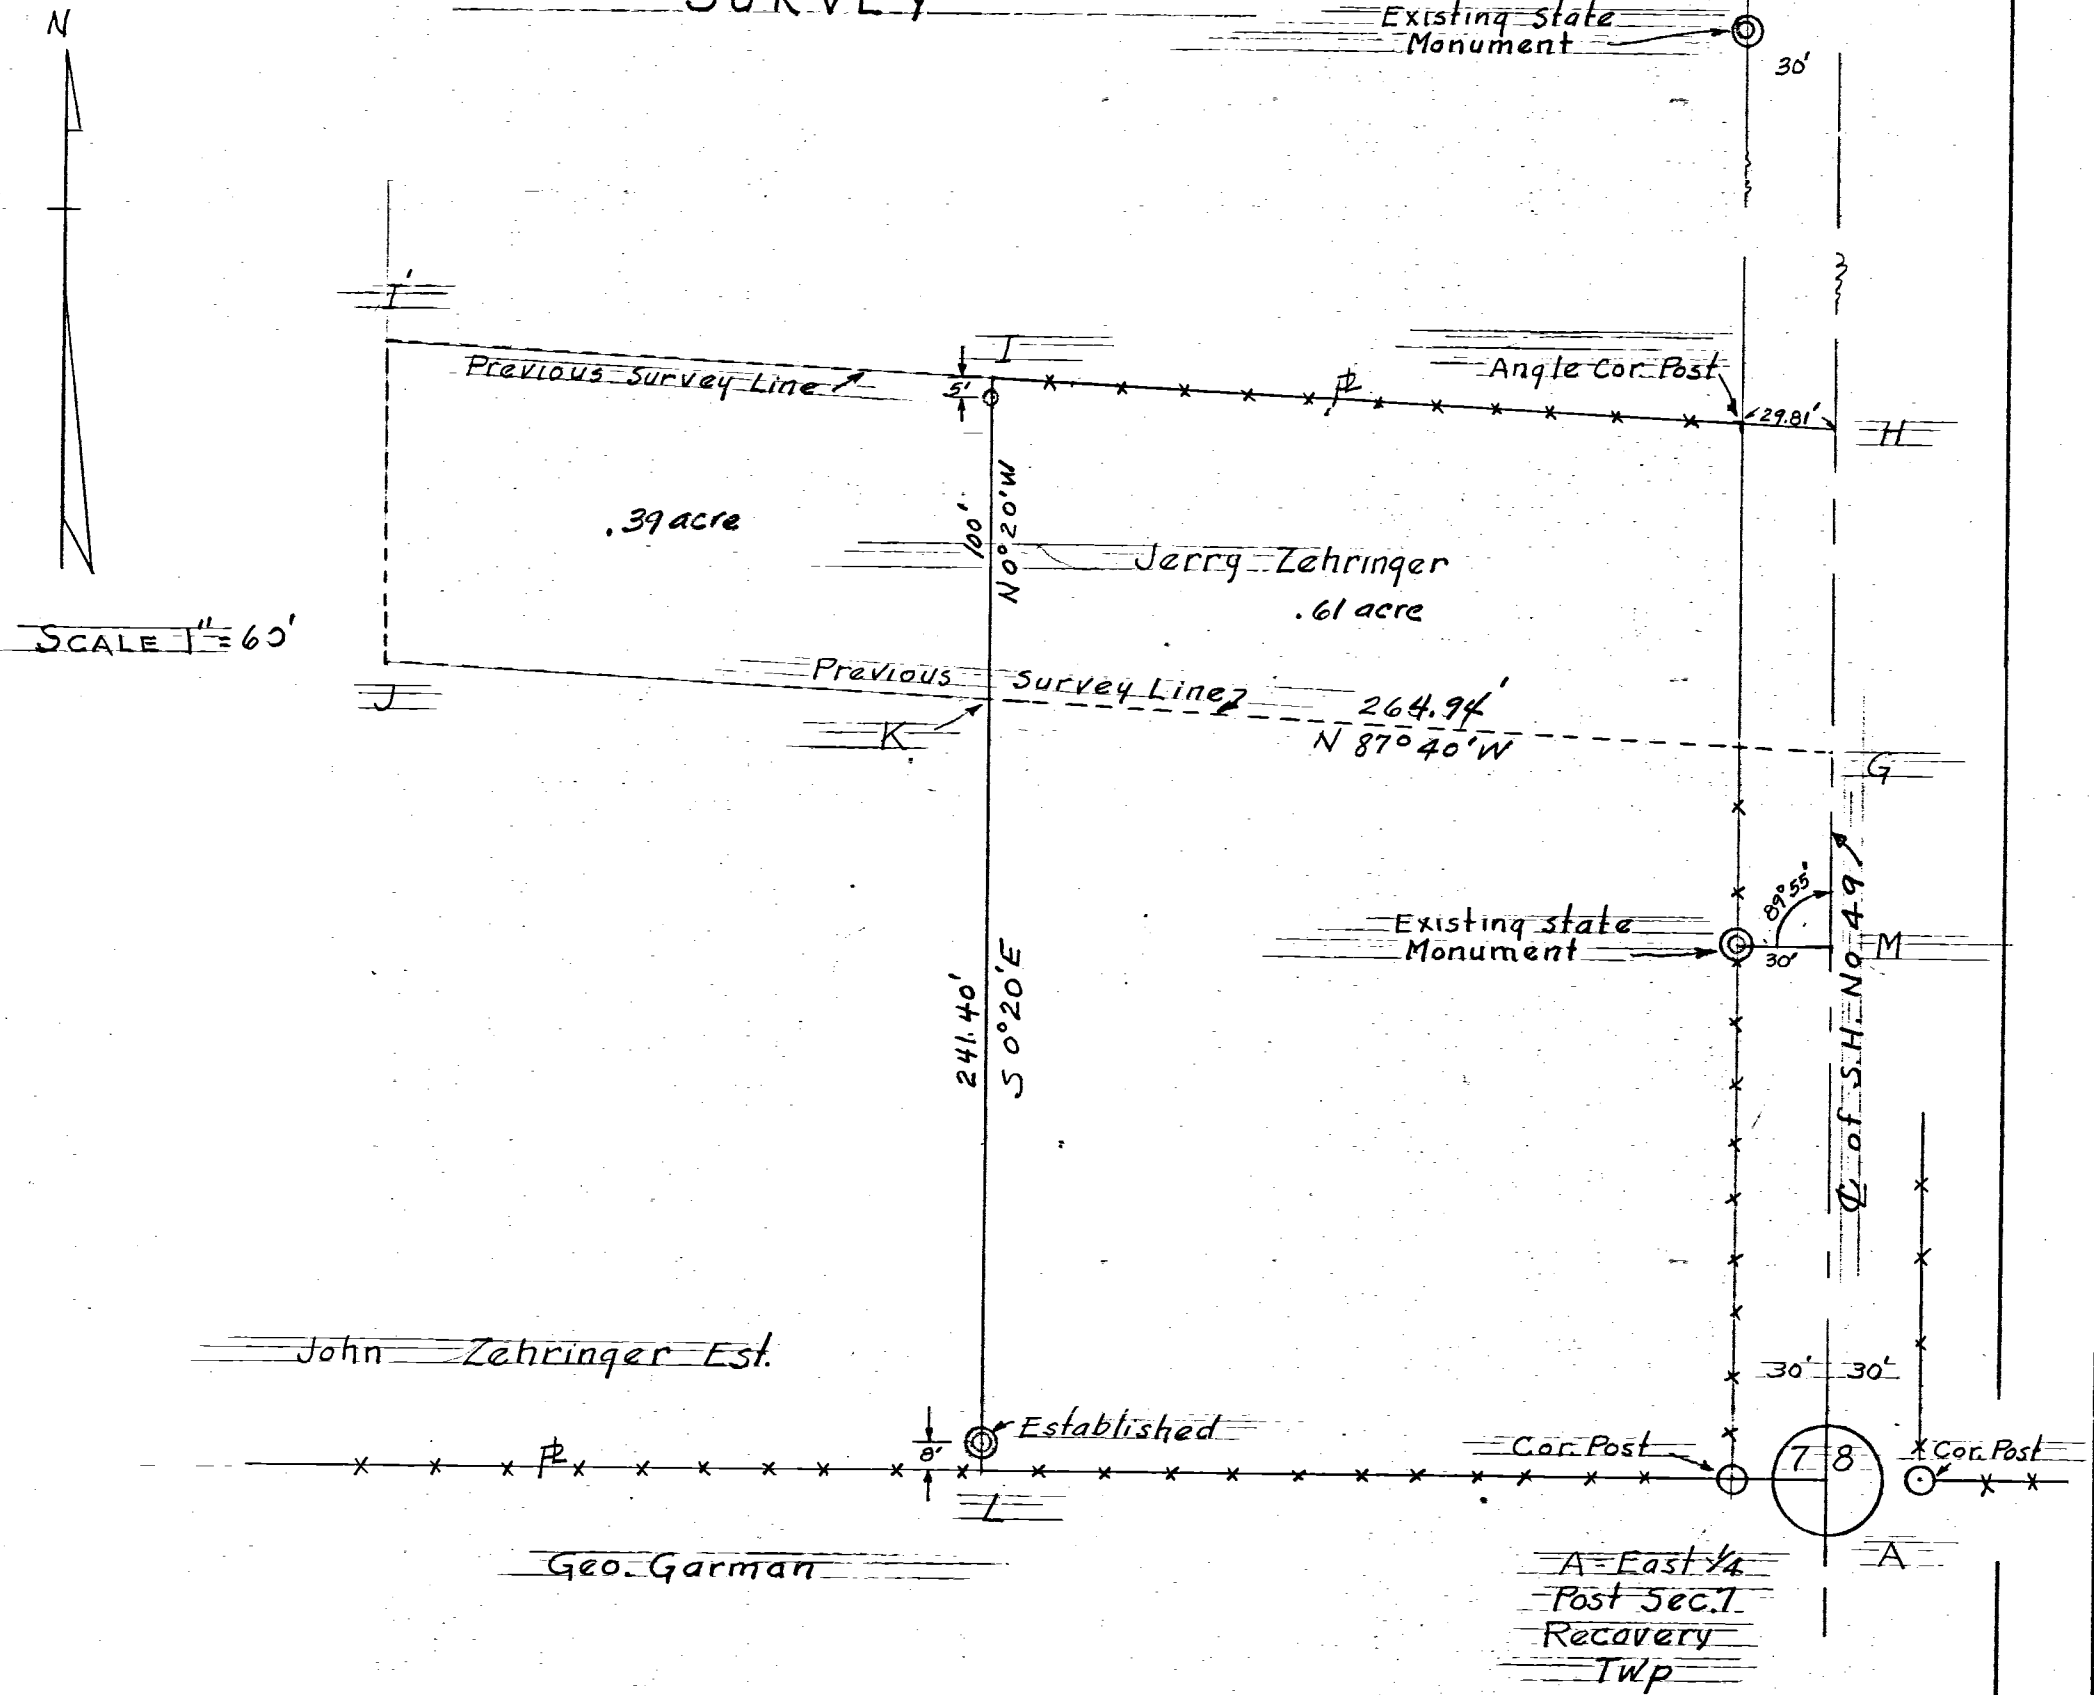 SURVEY
N
Existing State
Monument
30'
I'
I
Previous Survey Line
5'
Angle Cor. Post
29.81'
H
.39 acre
100'
N 0° 20' W
Jerry Zehringer
.61 acre
SCALE 1" = 60'
J
Previous Survey Line
K
264.94'
N 87° 40' W
G
89° 55'
Existing State
Monument
30'
M
℄ of S.H. No. 49
241.40'
S 0° 20' E
John Zehringer Est.
30' 30'
8'
Established
Cor. Post
7 8
Cor. Post
L
Geo. Garman
A
A = East 1/4
Post Sec. 7
Recovery
Twp